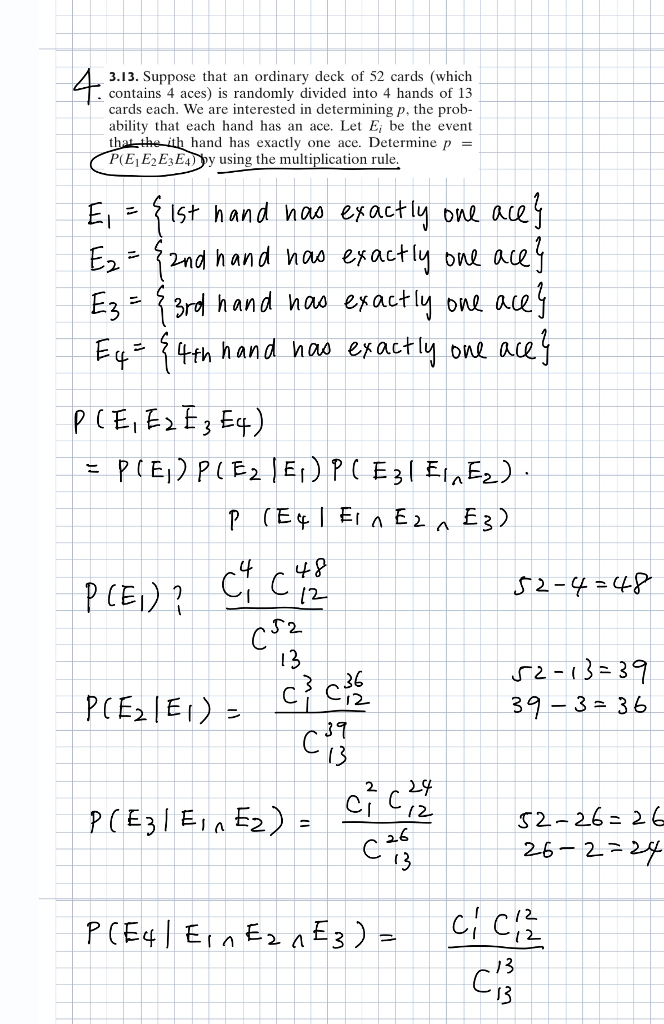 4.
3.13. Suppose that an ordinary deck of 52 cards (which
contains 4 aces) is randomly divided into 4 hands of 13
cards each. We are interested in determining p, the prob-
ability that each hand has an ace. Let Eᵢ be the event
that the ith hand has exactly one ace. Determine p =
P(E₁E₂E₃E₄) by using the multiplication rule.
E₁ = {1st hand has exactly one ace}
E₂ = {2nd hand has exactly one ace}
E₃ = {3rd hand has exactly one ace}
E₄ = {4th hand has exactly one ace}
P(E₁E₂E₃E₄)
= P(E₁) P(E₂|E₁) P(E₃|E₁∩E₂) ·
P(E₄|E₁∩E₂∩E₃)
P(E₁)? C⁴₁ C⁴⁸₁₂ / C⁵²₁₃ 52-4=48
P(E₂|E₁) = C³₁ C³⁶₁₂ / C³⁹₁₃ 52-13=39
39-3=36
P(E₃|E₁∩E₂) = C²₁ C²⁴₁₂ / C²⁶₁₃ 52-26=26
26-2=24
P(E₄|E₁∩E₂∩E₃) = C¹₁ C¹²₁₂ / C¹³₁₃